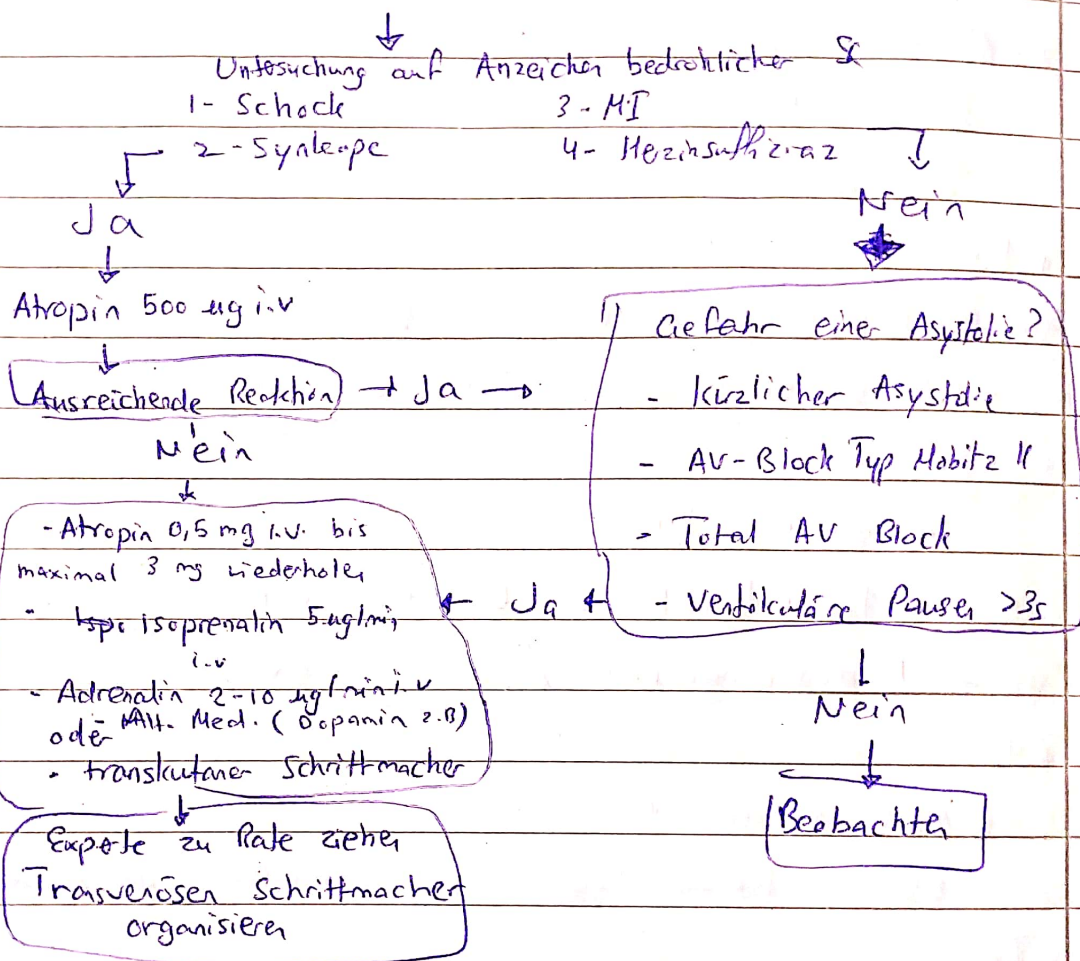 Untersuchung auf Anzeichen bedrohlicher
1- Schock 3- MI
2- Synkope 4- Herzinsuffizienz
Ja
Nein
Atropin 500 µg i.v
Ausreichende Reaktion → Ja →
Nein
- Atropin 0,5 mg i.v. bis
maximal 3 mg wiederholen
- isoprenalin 5 µg/min
i.v
- Adrenalin 2-10 µg/min i.v
oder Alt. Med. (Dopamin z.B)
- transkutaner Schrittmacher
Experte zu Rate ziehen
Transvenösen Schrittmacher
organisieren
Gefahr einer Asystolie?
- kürzlicher Asystolie
- AV-Block Typ Mobitz II
- Total AV Block
- Ventrikuläre Pausen >3s
← Ja ←
Nein
Beobachten